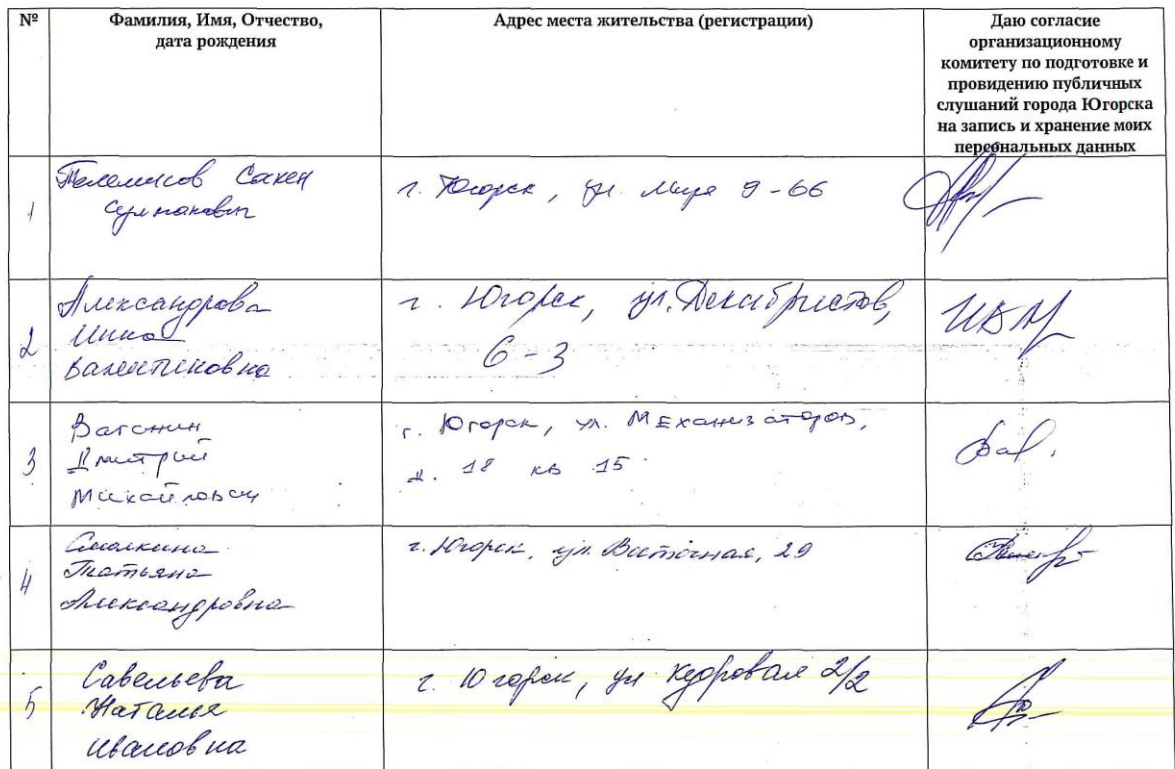 №
Фамилия, Имя, Отчество,
дата рождения
Адрес места жительства (регистрации)
Даю согласие
организационному
комитету по подготовке и
провидению публичных
слушаний города Югорска
на запись и хранение моих
персональных данных
1
Телемисов Сакен
г. Югорск, ул. Мира 9-66
2
Александрова
Инна
Валентиновна
г. Югорск, ул. Декабристов,
6-3
3
Ваганин
Дмитрий
Михайлович
г. Югорск, ул. Механизаторов,
д. 18 кв 15
4
Смолкина
Татьяна
Александровна
г. Югорск, ул. Восточная, 29
5
Савельева
Наталья
Ивановна
г. Югорск, ул Кедровая 2/2